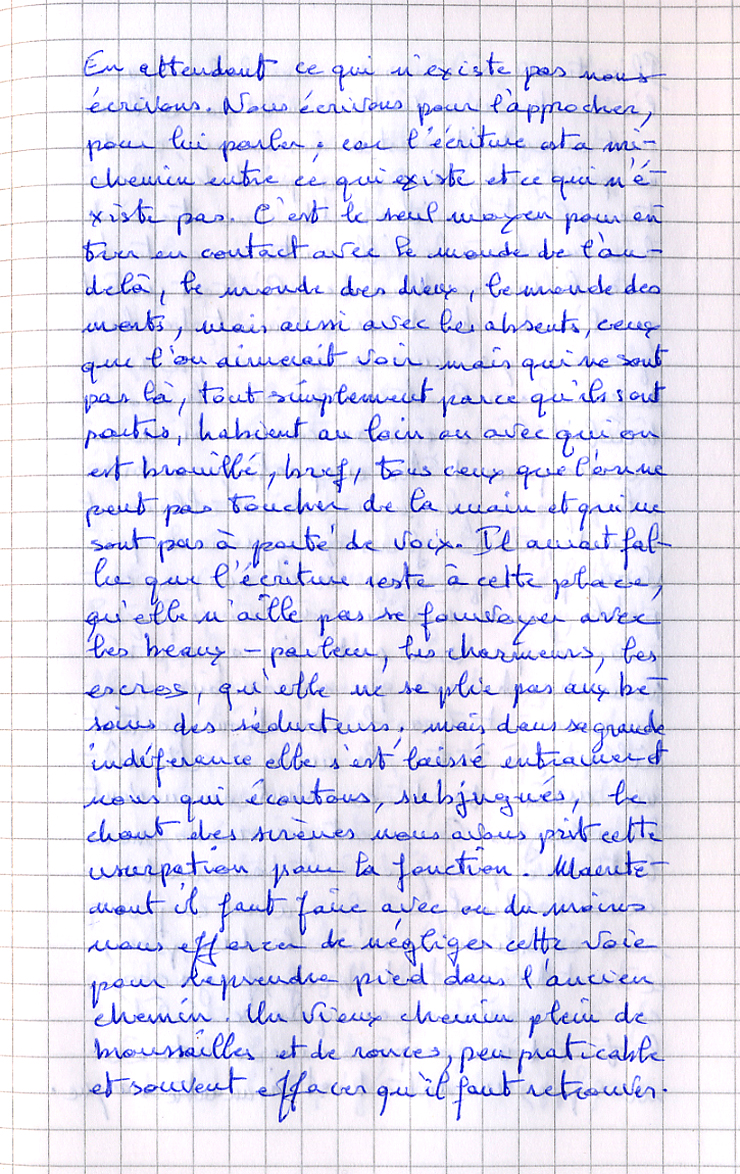 En attendant ce qui n'existe pas nous
écrivons. Nous écrivons pour l'approcher,
pour lui parler ; car l'écriture est a mi-
chemin entre ce qui existe et ce qui n'é-
xiste pas. C'est le seul moyen pour en
trer en contact avec le monde de l'au-
delà, le monde des dieux, le monde des
morts, mais aussi avec les absents, ceux
que l'on aimerait voir mais qui ne sont
pas là, tout simplement parce qu'ils sont
partis, habient au loin ou avec qui on
est brouillé, bref, tous ceux que l'on ne
peut pas toucher de la main et qui ne
sont pas à porté de voix. Il aurait fal-
lu que l'écriture reste à cette place,
qu'elle n'aille pas se fourvoyer avec
les beaux-parleur, les charmeurs, les
escros, qu'elle ne se plie pas aux be-
soins des séducteurs ; mais dans sa grande
indéference elle s'est laissé entrainer et
nous qui écoutons, subjugués, le
chant des sirènes nous avons prit cette
usurpation pour la fonction. Mainte-
nant il faut faire avec ou du moins
nous efforcer de négliger cette voie
pour reprendre pied dans l'ancien
chemin. Un vieux chemin plein de
broussailles et de ronces, peu praticable
et souvent effacer qu'il faut retrouver.